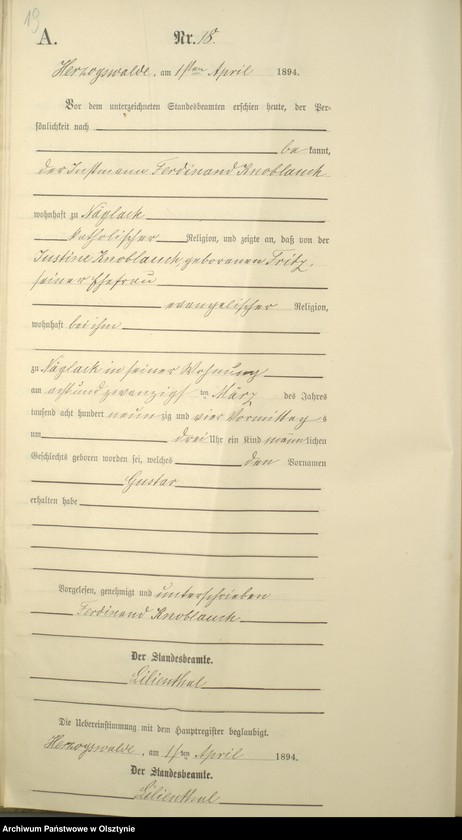 19
A. Nr. 18.
Herzogswalde, am 1sten April 1894.
Vor dem unterzeichneten Standesbeamten erschien heute, der Per-
sönlichkeit nach
be kannt,
der Instmann Ferdinand Knoblauch
wohnhaft zu Näglack
katholischer Religion, und zeigte an, daß von der
Justine Knoblauch, geborenen Fritz,
seiner Ehefrau
evangelischer Religion,
wohnhaft bei ihm
zu Näglack in seiner Wohnung
am achtundzwanzigsten März des Jahres
tausend acht hundert neun zig und vier Vormittags
um drei Uhr ein Kind männlichen
Geschlechts geboren worden sei, welches den Vornamen
Gustav
erhalten habe
Vorgelesen, genehmigt und unterschrieben
Ferdinand Knoblauch
Der Standesbeamte.
Lilienthal
Die Uebereinstimmung mit dem Hauptregister beglaubigt.
Herzogswalde, am 1sten April 1894.
Der Standesbeamte.
Lilienthal
Archiwum Państwowe w Olsztynie